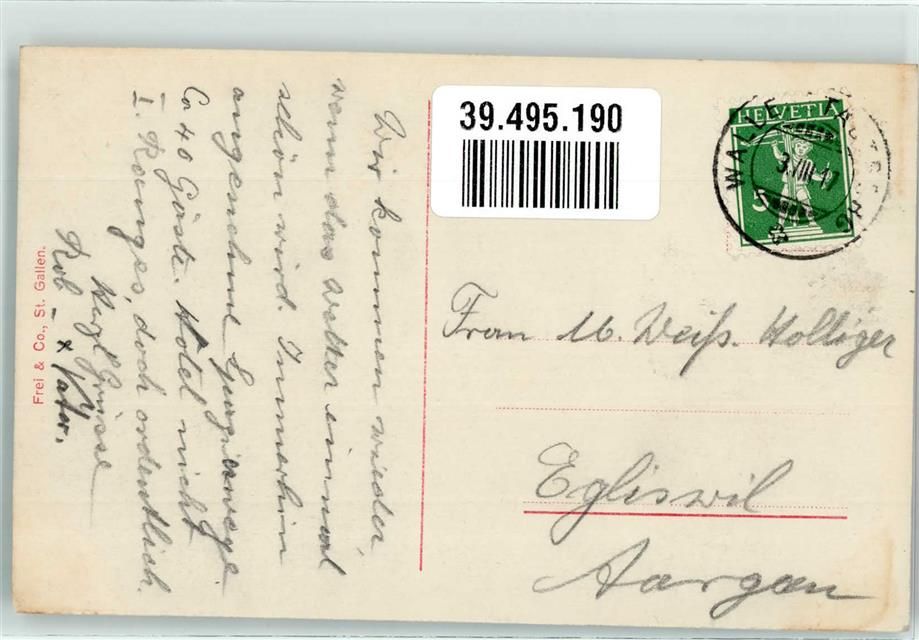 Wir kommen wieder,
wenn das Wetter einmal
schön wird. Immerhin
angenehme Spazierwege
Ca 40 Gäste. Hotel nicht
I. Ranges, doch ordentlich.
Herzl. Grüsse
Rob - x Vater.
Frei & Co., St. Gallen.
39.495.190
HELVETIA
5
WALD
3.VIII.17
Frau M. Weiß. Holliger
Egliswil
Aargau